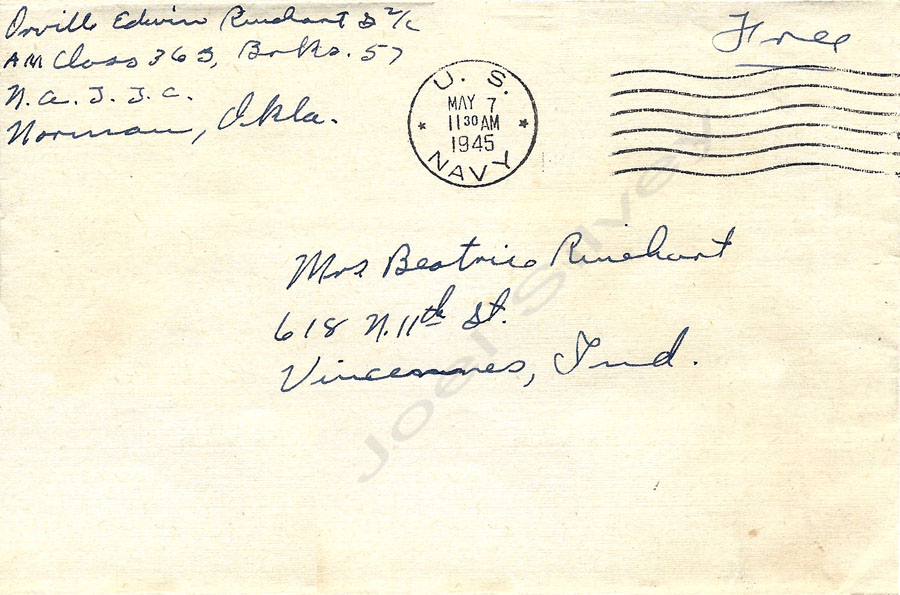 Orville Edwin Rinehart S 2/c
AM Class 365, Brks. 57
N.A.T.T.C.
Norman, Okla.
Free
U. S.
MAY 7
11 30 AM
1945
NAVY
Mrs Beatrice Rinehart
618 N. 11th St.
Vincennes, Ind.
Joel Silvey